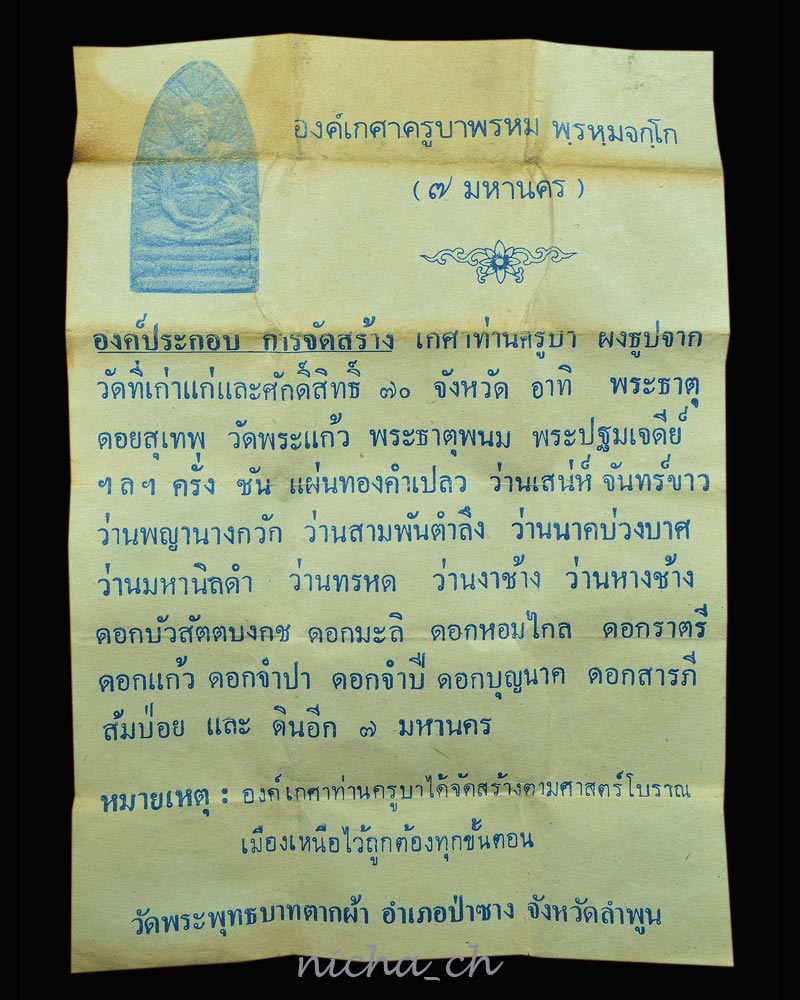 องค์เกศาครูบาพรหม พฺรหฺมจกฺโก
(๗ มหานคร)
องค์ประกอบ การจัดสร้าง เกศาท่านครูบา ผงธูปจาก
วัดที่เก่าแก่และศักดิ์สิทธิ์ ๗๐ จังหวัด อาทิ พระธาตุ
ดอยสุเทพ วัดพระแก้ว พระธาตุพนม พระปฐมเจดีย์
ฯลฯ ครั่ง ชัน แผ่นทองคำเปลว ว่านเสน่ห์จันทร์ขาว
ว่านพญานางกวัก ว่านสามพันตำลึง ว่านนาคบ่วงบาศ
ว่านมหานิลดำ ว่านทรหด ว่านงาช้าง ว่านหางช้าง
ดอกบัวสัตตบงกช ดอกมะลิ ดอกหอมไกล ดอกราตรี
ดอกแก้ว ดอกจำปา ดอกจำปี ดอกบุญนาค ดอกสารภี
ส้มป่อย และ ดินอีก ๗ มหานคร
หมายเหตุ : องค์เกศาท่านครูบาได้จัดสร้างตามศาสตร์โบราณ
เมืองเหนือไว้ถูกต้องทุกขั้นตอน
วัดพระพุทธบาทตากผ้า อำเภอป่าซาง จังหวัดลำพูน
nicha_ch